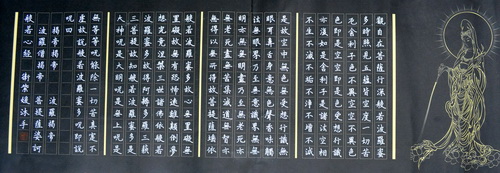 觀自在菩薩行深般若波羅蜜
多時照見五蘊皆空度一切苦
厄舍利子色不異空空不異色
色即是空空即是色受想行識
亦復如是舍利子是諸法空相
不生不滅不垢不淨不增不減
是故空中無色無受想行識無
眼耳鼻舌身意無色聲香味觸
法無眼界乃至無意識界無無
明亦無無明盡乃至無老死亦
無老死盡無苦集滅道無智亦
無得以無所得故菩提薩埵依
般若波羅蜜多故心無罣礙無
罣礙故無有恐怖遠離顛倒夢
想究竟涅槃三世諸佛依般若
波羅蜜多故得阿耨多羅三藐
三菩提故知般若波羅蜜多是
大神咒是大明咒是無上咒是
無等等咒能除一切苦真實不
虛故說般若波羅蜜多咒即說
咒曰
揭帝揭帝 波羅揭帝
波羅僧揭帝 菩提薩婆訶
般若心經